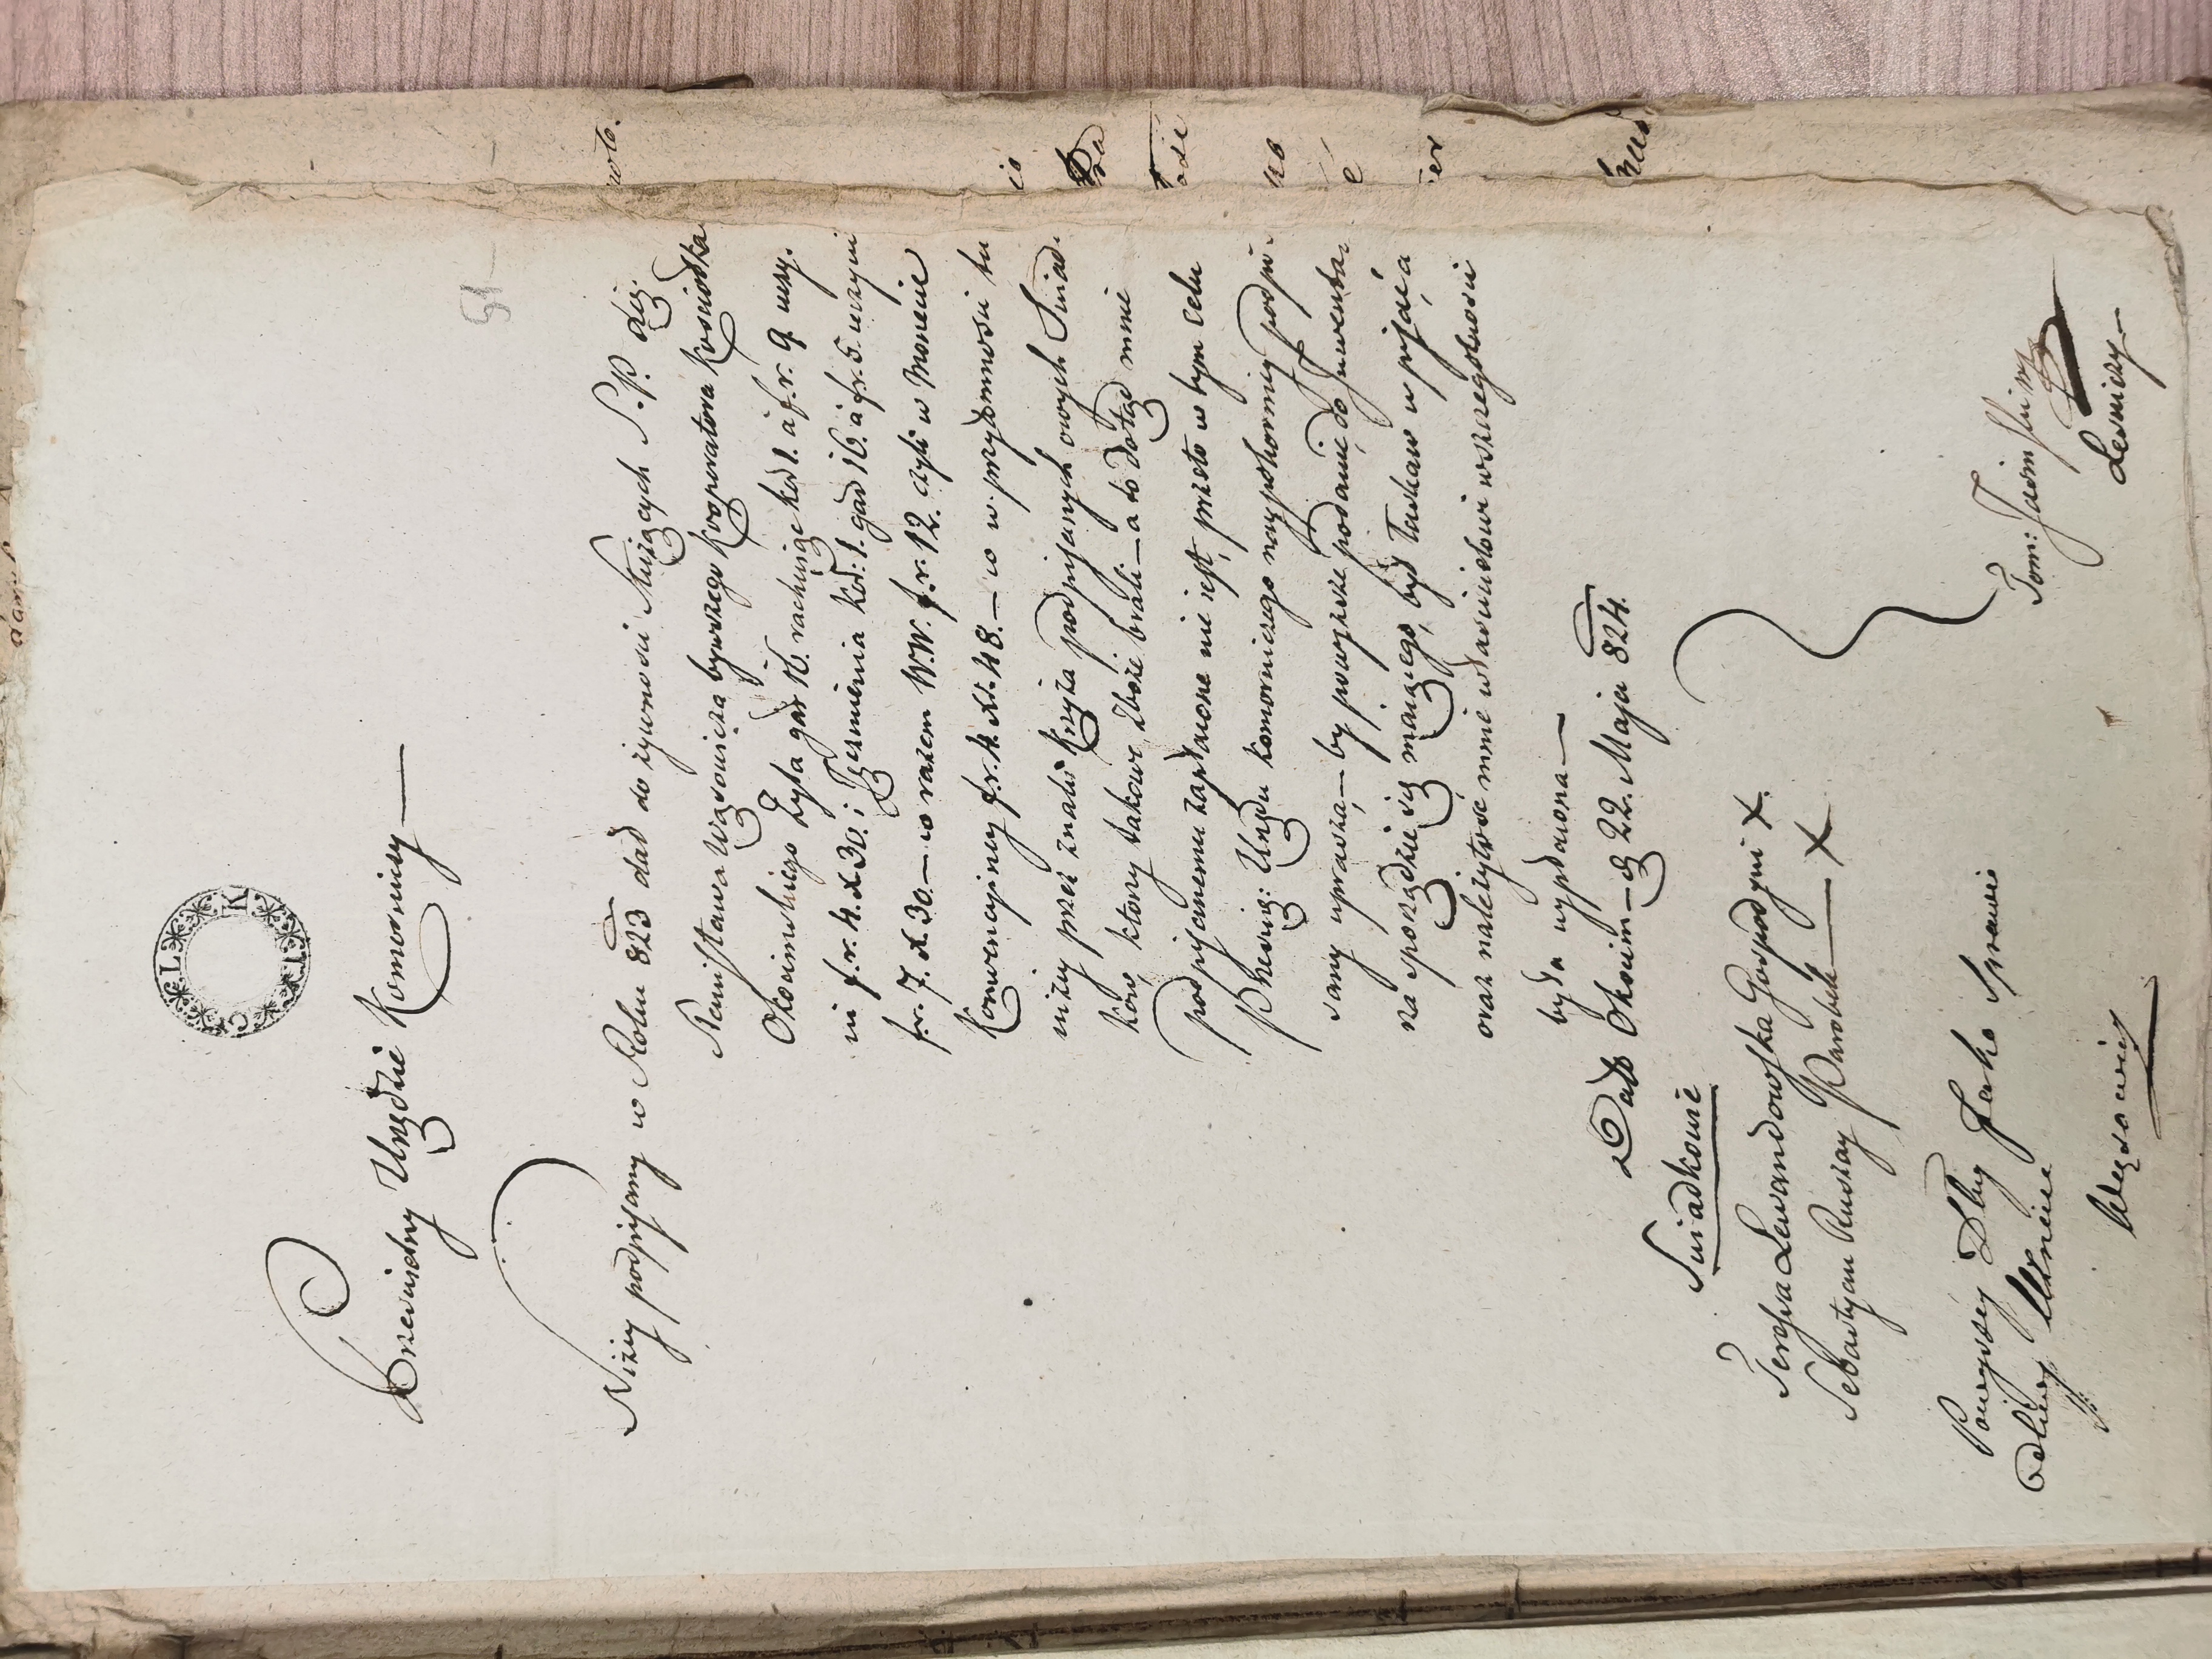 51
Prześwietny Urzędzie Komorniczy —
Niżey podpisany w Roku 823 dał do żywności Służących S. P. Xię.
Stanisława Wąsowicza bywszego Kooperatora Kościołka
Okocimskiego Żyta gar 16. rachuiąc kor 1. à f.r. 9 uczy.
ni f.r. 4. x 30. i Jęczmienia kor: 1. gar 16. à f.r. 5. uczyni
f.r. 7. x. 30. — co razem W.W. f.r. 12. czyli w Monecie
Konwencyiney f.r. 4. xr. 48. — co w przytomności tu
niżey przez znaki Krzyża podpisanych owych Świad.
ków, ktory takowe Zboże brali — a to dotąd mnie
podpisanemu zapłacone nie iest, przeto w tym celu
Prześwię: Urzędu Komorniczego naypokorniey podpi.
sany uprasza, — by powyższe podanie do Inwenta.
na sporządzić się maiącego, był łaskaw wpisać a
oraz należytość mnie właścicielowi w szczegolności
była wypłacona —
Datt Okocim — d 22. Maja 824.
Świadkowie
Teressa Lewandowska Gospodyni X.
Sebastyan Ruszay Parobek — X
Tom:
Leśniczy —
Powyższy Dług Jako
Wąsowicz
C K